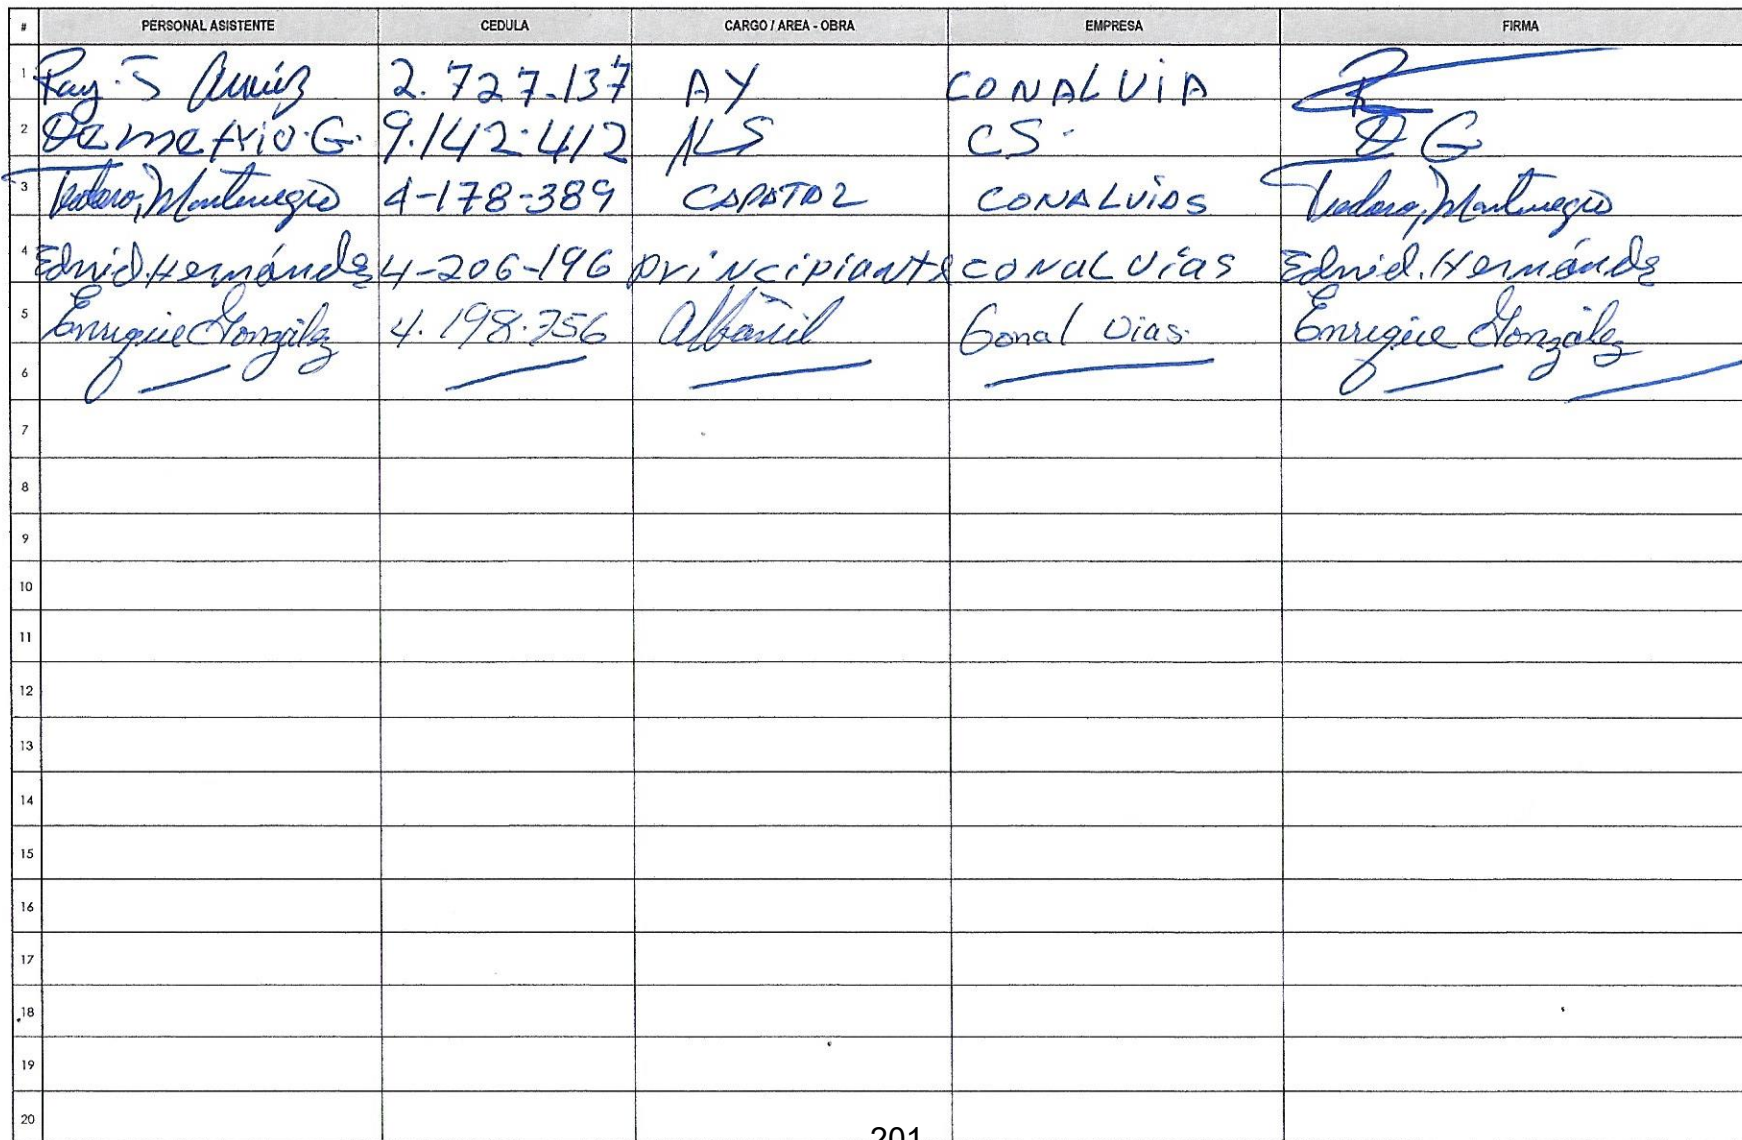 # PERSONAL ASISTENTE CEDULA CARGO / AREA - OBRA EMPRESA FIRMA
1 Ray. S 2.727-137 AY CONALVIA
2 Demetrio.G. 9.142.412 CS. D G
3 Teodoro, Montenegro 4-178-389 CAPATAZ CONALVIAS Teodoro, Montenegro
4 Ednid.Hernández 4-206-196 principiante CONALVías Ednid.Hernández
5 Enrique González 4.198.756 Albañil Conal Vias. Enrique González
6
7
8
9
10
11
12
13
14
15
16
17
18
19
20
201